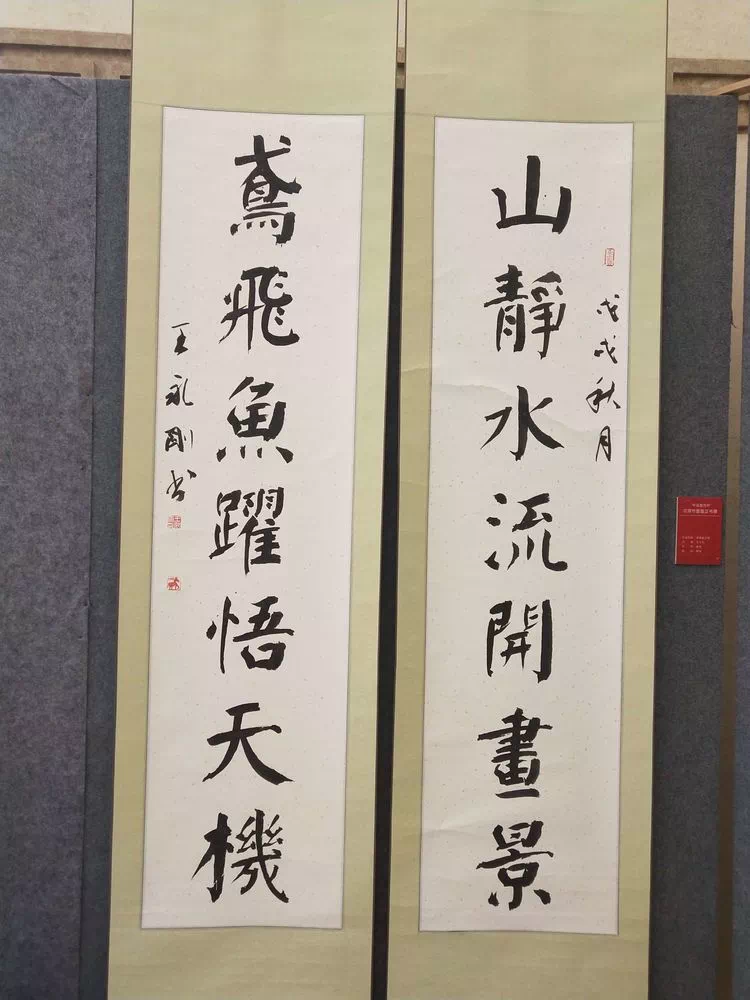 山靜水流開畫景
戊戌秋月
鳶飛魚躍悟天機
王永剛书